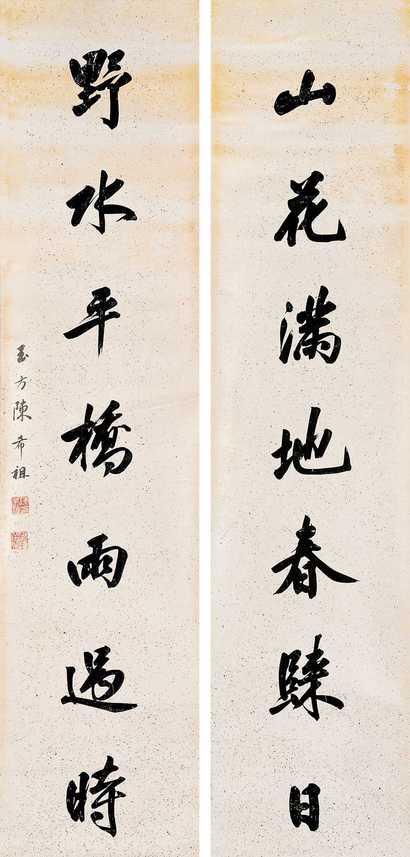 山花滿地春歸日
野水平橋雨過時
玉方陳希祖